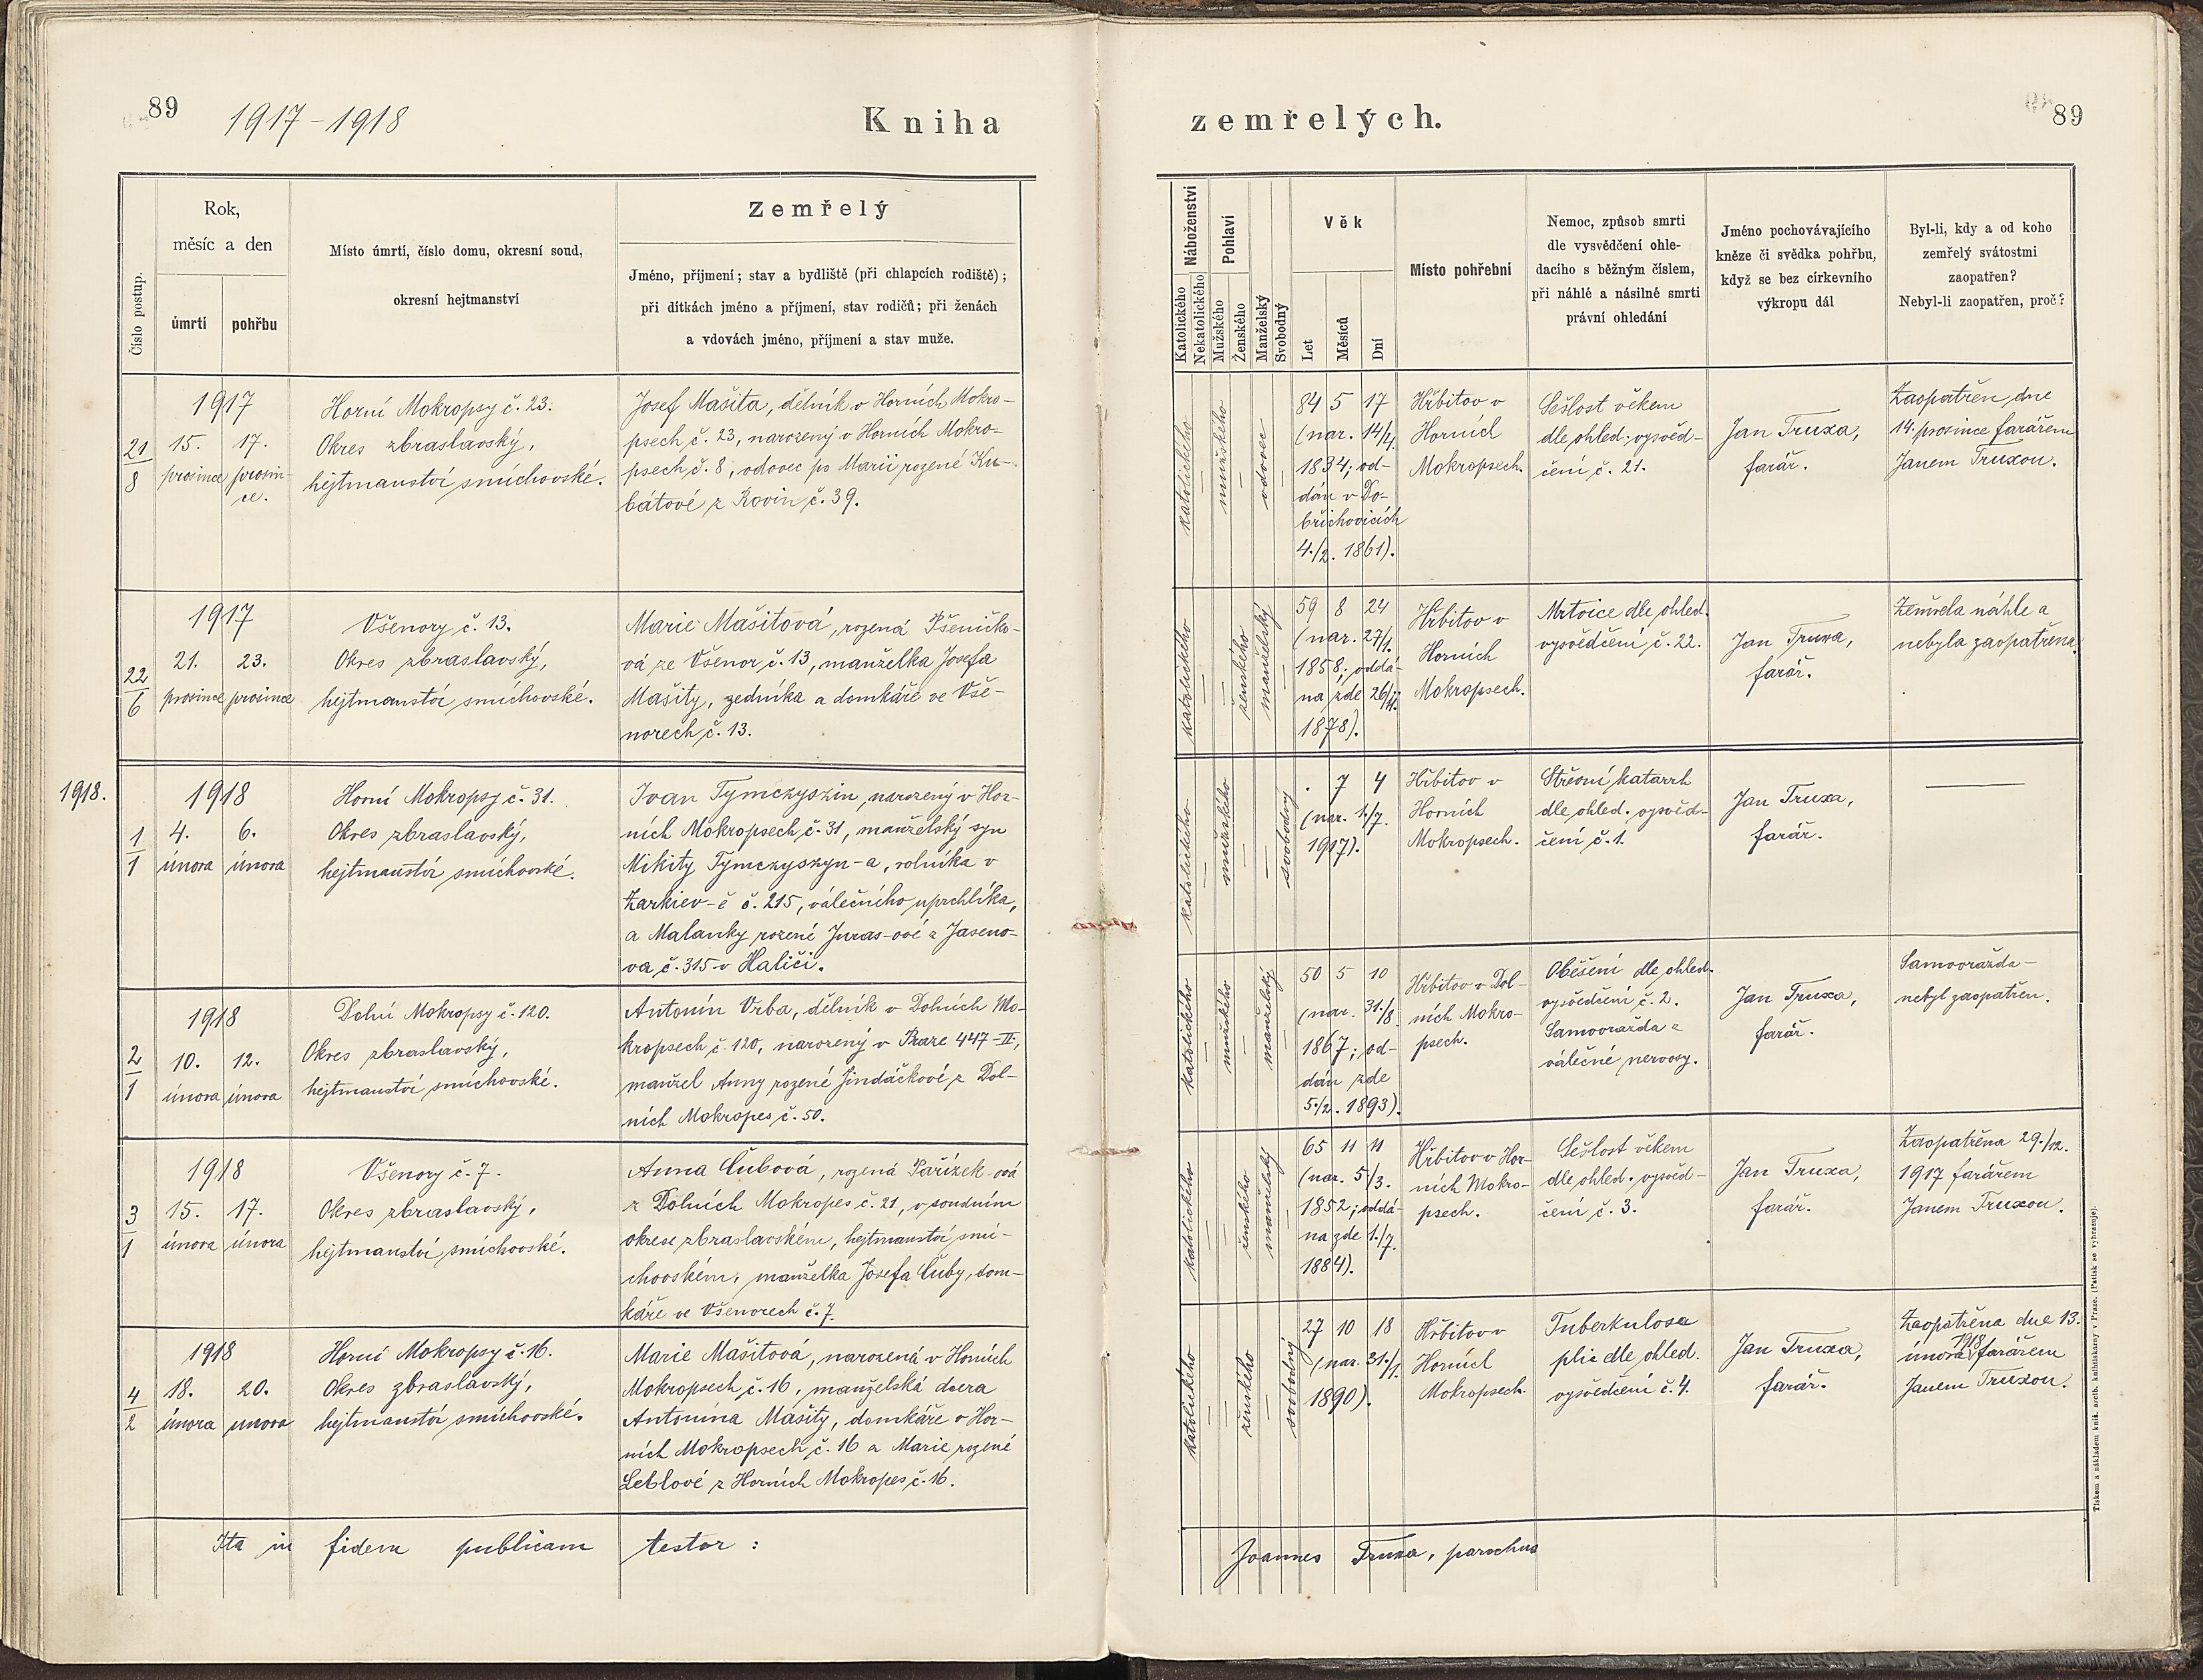 89
1917 – 1918
Kniha
zemřelých.
89
Číslo postup.
Rok,
měsíc a den
úmrtí
pohřbu
Místo úmrtí, číslo domu, okresní soud,
okresní hejtmanství
Zemřelý
Jméno, příjmení; stav a bydliště (při chlapcích rodiště);
při dítkách jméno a příjmení, stav rodičů; při ženách
a vdovách jméno, příjmení a stav muže.
Náboženství
Katolického
Nekatolického
Pohlaví
Mužského
Ženského
Manželský
Svobodný
Věk
Let
Měsíců
Dní
Místo pohřební
Nemoc, způsob smrti
dle vysvědčení ohle-
dacího s běžným číslem,
při náhlé a násilné smrti
právní ohledání
Jméno pochovávajícího
kněze či svědka pohřbu,
když se bez církevního
výkropu dál
Byl-li, kdy a od koho
zemřelý svátostmi
zaopatřen?
Nebyl-li zaopatřen, proč?
21
8
1917
15. 17.
prosince prosin-
ce.
Horní Mokropsy č. 23.
Okres zbraslavský,
hejtmanství smíchovské.
Josef Mašita, dělník v Horních Mokro-
psech č. 23, narozený v Horních Mokro-
psech č. 8, vdovec po Marii rozené Ku-
bátové z Rovin č. 39.
katolického
—
mužského
—
vdovec
—
84 5 17
(nar. 14/4.
1834; od-
dán v Do-
břichovicích
4./2. 1861).
Hřbitov v
Horních
Mokropsech.
Sešlost věkem
dle ohled. vysvěd-
čení č. 21.
Jan Truxa,
farář.
Zaopatřen dne
14. prosince farářem
Janem Truxou.
22
6
1917
21. 23.
prosince prosince
Všenory č. 13.
Okres zbraslavský,
hejtmanství smíchovské.
Marie Mašitová, rozená Pšeničko-
vá ze Všenor č. 13, manželka Josefa
Mašity, zedníka a domkáře ve Vše-
norech č. 13.
katolického
—
—
ženského
manželský
—
59 8 24
(nar. 27/1.
1858; oddá-
na zde 26/11.
1878).
Hřbitov v
Horních
Mokropsech.
Mrtvice dle ohled.
vysvědčení č. 22.
Jan Truxa,
farář.
Zemřela náhle a
nebyla zaopatřena.
1918.
1
1
1918
4. 6.
února února
Horní Mokropsy č. 31.
Okres zbraslavský,
hejtmanství smíchovské.
Ivan Tymczyszin, narozený v Hor-
ních Mokropsech č. 31, manželský syn
Mikity Tymczyszyn-a, rolníka v
Žarkiev-ě č. 215, válečného uprchlíka,
a Malanky rozené Juras-ové z Jaseno-
va č. 315 v Haliči.
katolického
—
mužského
—
—
svobodný
. 7 4
(nar. 1./7.
1917).
Hřbitov v
Horních
Mokropsech.
Střevní katarrh
dle ohled. vysvěd-
čení č. 1.
Jan Truxa,
farář.
—
2
1
1918
10. 12.
února února
Dolní Mokropsy č. 120.
Okres zbraslavský,
hejtmanství smíchovské.
Antonín Vrba, dělník v Dolních Mo-
kropsech č. 120, narozený v Praze 447-II,
manžel Anny rozené Jindáčkové z Dol-
ních Mokropes č. 50.
katolického
—
mužského
—
manželský
—
50 5 10
(nar. 31./8.
1867; od-
dán zde
5./2. 1893).
Hřbitov v Dol-
ních Mokro-
psech.
Oběšení dle ohled.
vysvědčení č. 2.
Samovražda z
válečné nervosy.
Jan Truxa,
farář.
Samovražda –
nebyl zaopatřen.
3
1
1918
15. 17.
února února
Všenory č. 7.
Okres zbraslavský,
hejtmanství smíchovské.
Anna Čubová, rozená Pařízek-ová
z Dolních Mokropes č. 21, v soudním
okrese zbraslavském, hejtmanství smí-
chovském, manželka Josefa Čuby, dom-
káře ve Všenorech č. 7.
katolického
—
—
ženského
manželský
—
65 11 11
(nar. 5./3.
1852; oddá-
na zde 1./7.
1884).
Hřbitov v Hor-
ních Mokro-
psech.
Sešlost věkem
dle ohled. vysvěd-
čení č. 3.
Jan Truxa,
farář.
Zaopatřena 29./12.
1917 farářem
Janem Truxou.
4
2
1918
18. 20.
února unora
Horní Mokropsy č. 16.
Okres zbraslavský,
hejtmanství smíchovské.
Marie Mašitová, narozená v Horních
Mokropsech č. 16, manželská dcera
Antonína Mašity, domkáře v Hor-
ních Mokropsech č. 16 a Marie rozené
Leblové z Horních Mokropes č. 16.
katolického
—
—
ženského
—
svobodný
27 10 18
(nar. 31./1.
1890).
Hřbitov v
Horních
Mokropsech.
Tuberkulosa
plic dle ohled.
vysvědčení č. 4.
Jan Truxa,
farář.
Zaopatřena dne 13.
února 1918 farářem
Janem Truxou.
Ita in fidem publicam testor:
Joannes Truxa, parochus
Tiskem a nákladem kníž. arcib. knihtiskárny v Praze. (Patisk se vyhrazuje).